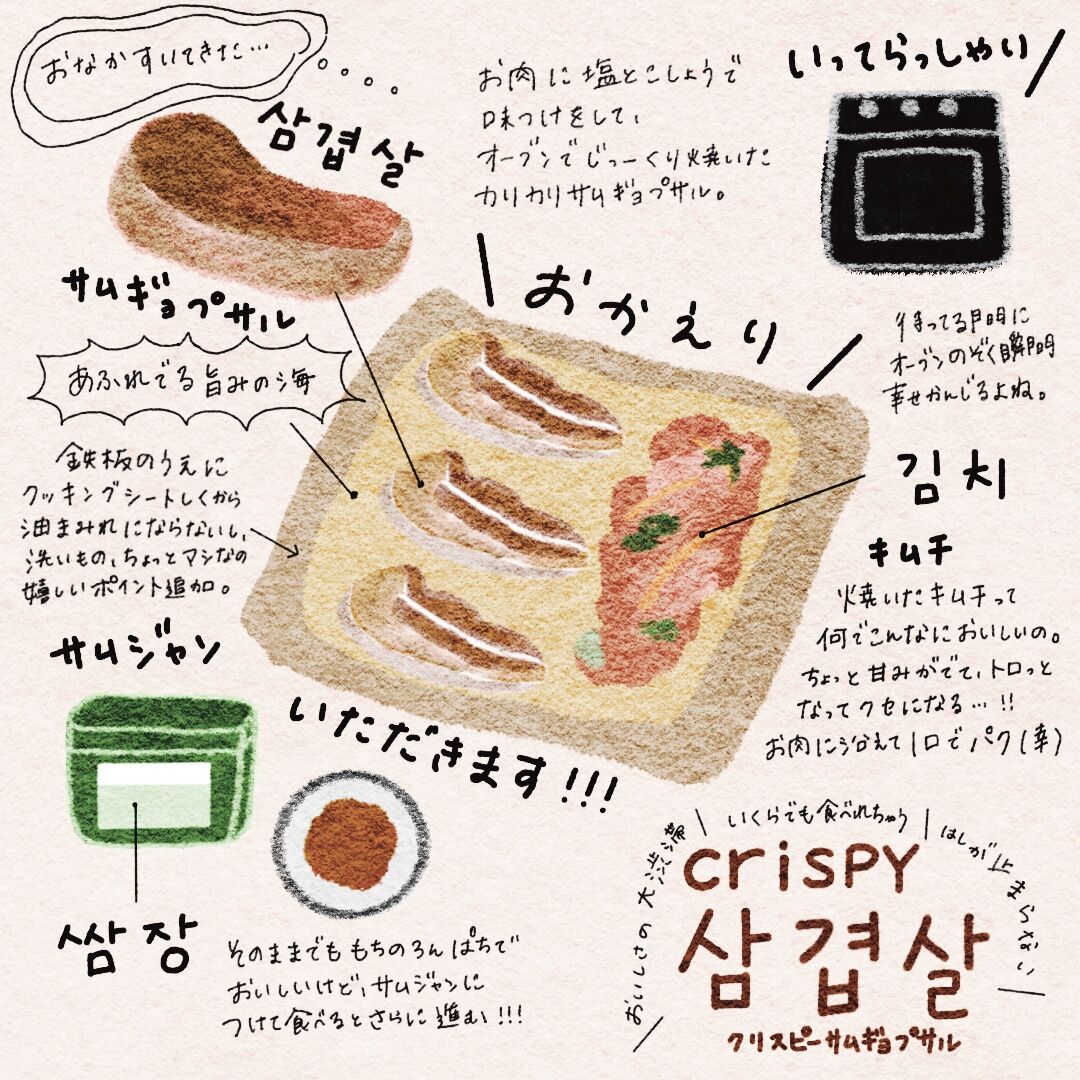 おなかすいてきた…
삼겹살
サムギョプサル
お肉に塩とこしょうで
味つけをして、
オーブンでじっーくり焼いた
カリカリサムギョプサル。
いってらっしゃい
おかえり
待ってる間に
オーブンのぞく瞬間
幸せかんじるよね。
あふれでる旨みの海
鉄板のうえに
クッキングシートしくから
油まみれにならないし、
洗いもの、ちょっとマシなの
嬉しいポイント追加。
김치
キムチ
焼いたキムチって
何でこんなにおいしいの。
ちょっと甘みがでて、トロっと
なってクセになる…!!
お肉に添えて1口でパク(幸)
サムジャン
쌈장
いただきます!!!
そのままでももちのろんぱちで
おいしいけど、サムジャンに
つけて食べるとさらに進む!!!
おいしさの大渋滞
いくらでも食べれちゃう
はしが止まらない
crispy
삼겹살
クリスピーサムギョプサル